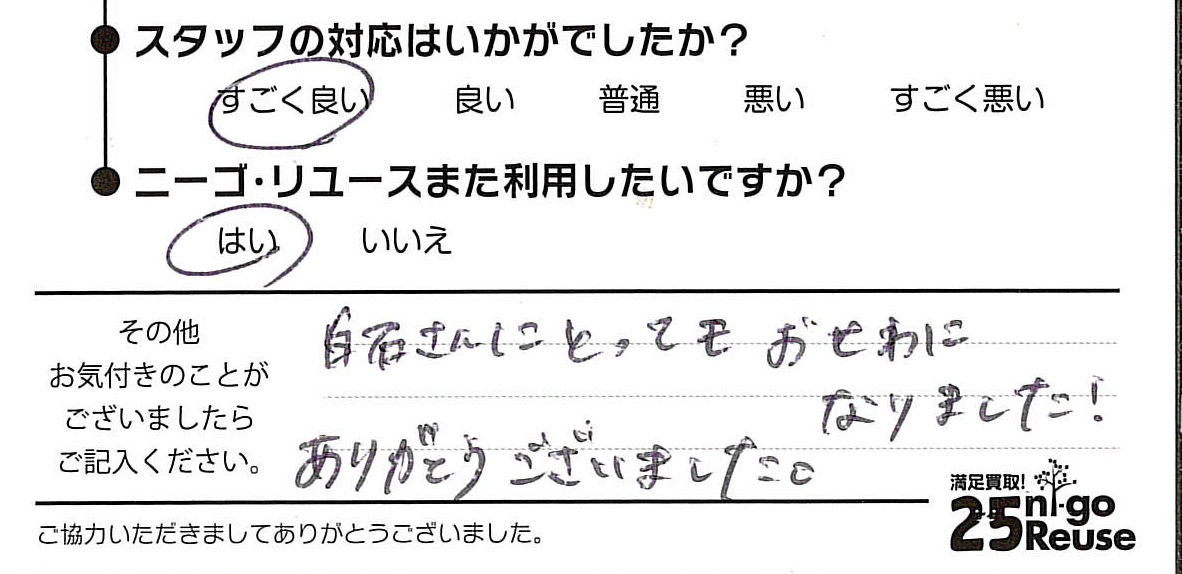 スタッフの対応はいかがでしたか?
すごく良い 良い 普通 悪い すごく悪い
ニーゴ・リユースまた利用したいですか?
はい いいえ
その他
お気付きのことが
ございましたら
ご記入ください。
白石さんにとってもおせわに
なりました!
ありがとうございました。
ご協力いただきましてありがとうございました。
満足買取!
25 ni-go
Reuse